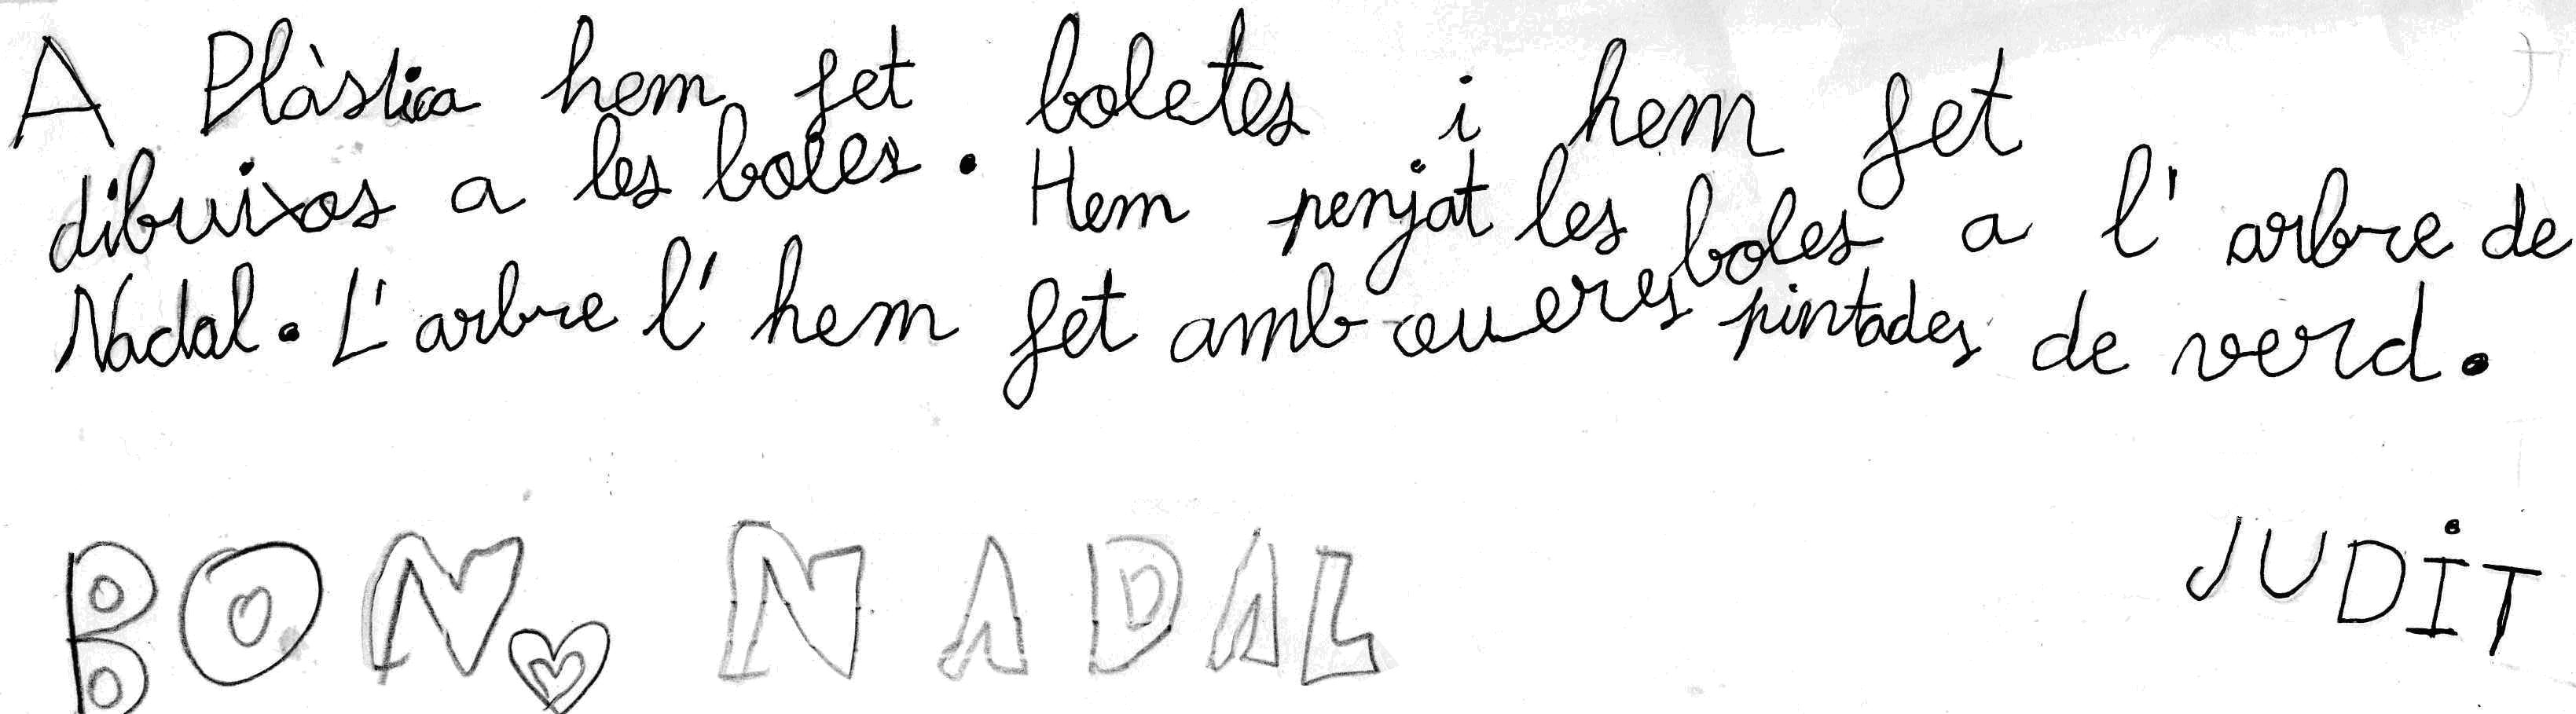 A Plàstica hem fet boletes i hem fet
dibuixos a les boles. Hem penjat les boles a l'arbre de
Nadal. L'arbre l'hem fet amb oueres pintades de verd.
BON NADAL
JUDIT